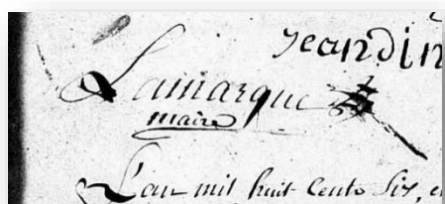 Jeandin
Lamarque
maire
L'an mil huit Cents Six, e